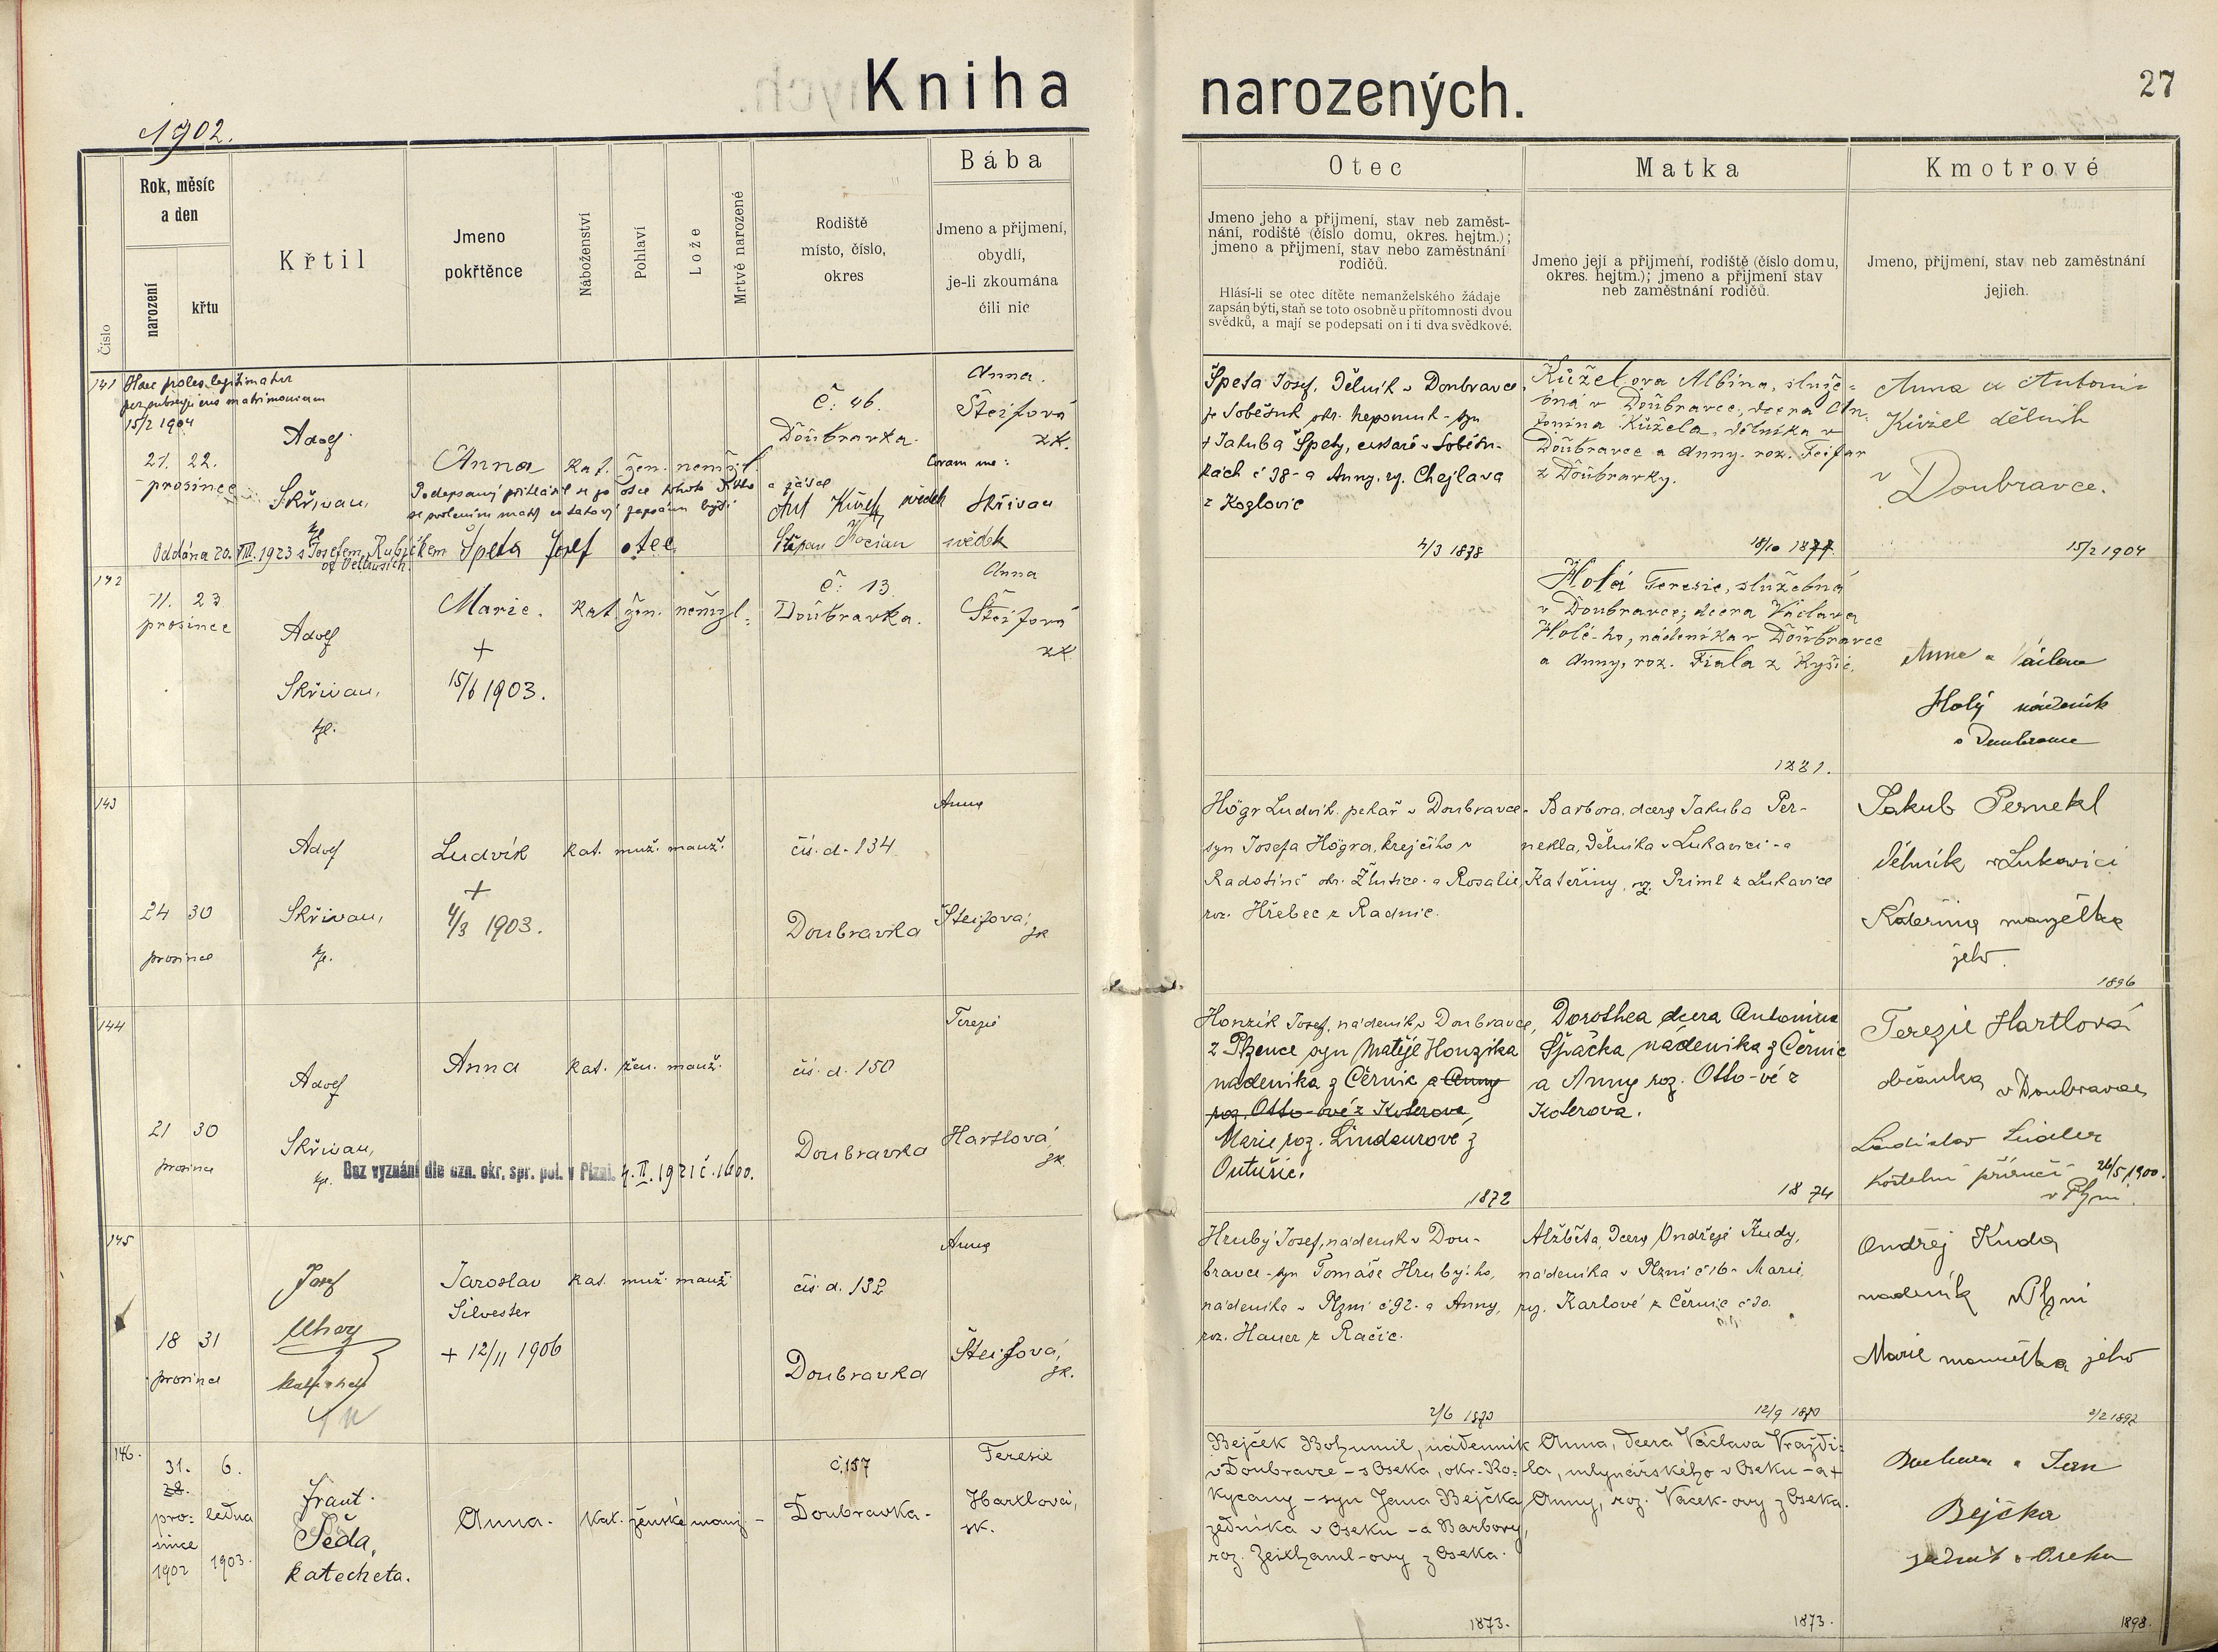 Kniha narozených.
27
1902.
Číslo
Rok, měsíc
a den
narození
křtu
Křtil
Jmeno
pokřtěnce
Náboženství
Pohlaví
Lože
Mrtvě narozené
Rodiště
místo, číslo,
okres
Bába
Jmeno a přijmení,
obydlí,
je-li zkoumána
čili nic
Otec
Jmeno jeho a přijmení, stav neb zaměst-
nání, rodiště (číslo domu, okres. hejtm.);
jmeno a přijmení, stav nebo zaměstnání
rodičů.
Hlásí-li se otec dítěte nemanželského žádaje
zapsán býti, staň se toto osobně u přítomnosti dvou
svědků, a mají se podepsati on i ti dva svědkové.
Matka
Jmeno její a přijmení, rodiště (číslo domu,
okres. hejtm.); jmeno a přijmení stav
neb zaměstnání rodičů.
Kmotrové
Jmeno, přijmení, stav neb zaměstnání
jejich.
141
Haec proles legitimatur
per subsequens matrimonium
15/2 1904
21. 22.
prosince
Adolf
Skřivan,
Anna
kat. žen. nemžl.
Podepsaný přihlásil se za otce tohoto
Špeta Josef otec
Oddána 20. VIII. 1923 s Josefem Rubíkem
č. 46.
Doubravka.
Ant Kužel svědek
Štěpan Kocian svědek
Anna
Šteifová
zk.
Coram me:
Skřivan
Špeta Josef, dělník v Doubravce,
z Soběsuk okr. Nepomuk - syn
† Jakuba Špety, cestaře v Soběsu-
kách č 38 - a Anny, rz. Chejlava
z Kozlovic
4/3 1878
Kůželova Albina, služe-
bná v Doubravce, dcera An-
tonína Kůžela, dělníka v
Doubravce a Anny. roz. Feifar
z Doubravky.
18/10 1877.
Anna a Antonín
Kůžel dělník
v
Doubravce.
15/2 1904
142
11. 23
prosince
Adolf
Skřivan,
Marie.
+
15/6 1903.
kat. žen. nemžl.
č. 13.
Doubravka.
Anna
Šteifová
zk.
Holá Teresie, služebná
v Doubravce; dcera Václava
Holé-ho, nádeníka v Doubravce
a Anny, roz. Fiala z Kyšic.
1881.
Anna a Václav
Holý nádeník
v Doubravce
143
24 30
prosince
Adolf
Skřivan,
Ludvík
+
4/3 1903.
kat. muž. manž.
čís. d. 134
Doubravka
Anna
Šteifová,
zk
Högr Ludvík, pekař v Doubravce-
syn Josefa Högra, krejčího v
Radotíně okr. Žlutice - a Rosalie,
roz. Hřebec z Radnic.
Barbora, dcera Jakuba Per-
nekla, dělníka v Lukavici - a
Kateřiny, rz. Priml z Lukavice
Jakub Pernekl
dělník v Lukavici
Kateřina manželka
jeho.
1896
144
21 30
prosince
Adolf
Skřivan,
Anna
kat. žen. manž.
Bez vyznání dle ozn. okr. spr. pol. v Plzni. 4. II. 1921 č. 1600.
čís. d. 150
Doubravka
Terezie
Hartlová,
zk
Honzík Josef, nádeník v Doubravce,
z Plzence syn Matěje Honzíka
nadeníka z Černic a Anny
roz. Otto-ové z Koterova,
Marie roz. Lindaurové z
Outušic.
1872
Dorothea dcera Antonína
Špačka nádeníka z Černic
a Anny roz. Otto-vé z
Koterova.
1874
Terezie Hartlová
občanka v Doubravce
Ladislav
kostelní
26/5 1900.
v Plzni.
145
18 31
prosince
Josef
katecheta
Jaroslav
Silvester
+ 12/11 1906
kat. muž. manž.
čís. d. 132
Doubravka
Anna
Šteifová,
zk.
Hrubý Josef, nádeník v Dou-
bravce - syn Tomáše Hrubý-ho,
nádeníka v Plzni č 92 - a Anny,
roz. Hauer z Račic.
2/6 1870
Alžběta, dcera Ondřeje Kudy,
nádeníka v Plzni č 16 - Marie,
rz. Karlové z Černic č 30.
12/9 1870
Ondřej Kuda
nadeník v Plzni
Marie manželka jeho
2/2 1892
146.
31.
28.
pro-
since
1902
6.
ledna
1903.
Frant.
Šeda,
katecheta.
Anna.
kat. ženské manž -
č. 157
Doubravka.
Teresie
Hartlová,
zk.
Bejček Bohumil, nádenník
v Doubravce - z Oseka, okr. Ro-
kycany - syn Jana Bejčka
zedníka v Oseku - a Barbory,
roz. Zeithaml-ovy z Oseka.
1873.
Anna, dcera Václava Vraždi-
la, mlynářského v Oseku - a †
Anny, roz. Vacek-ovy z Oseka.
1873.
Barbora a Jan
Bejčka
zedník v Oseku
1898.